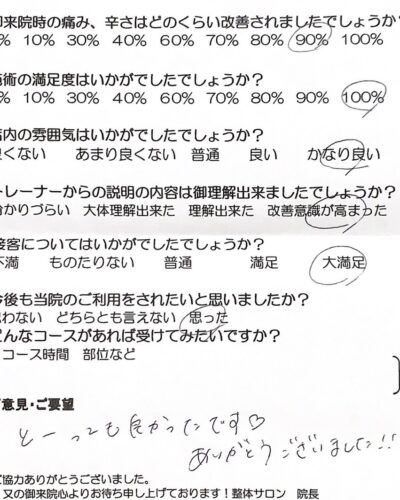 御来院時の痛み、辛さはどのくらい改善されましたでしょうか?
% 10% 30% 40% 60% 70% 80% 90% 100%
施術の満足度はいかがでしたでしょうか?
% 10% 30% 40% 60% 70% 80% 90% 100%
店内の雰囲気はいかがでしたでしょうか?
良くない あまり良くない 普通 良い かなり良い
トレーナーからの説明の内容は御理解出来ましたでしょうか?
分かりづらい 大体理解出来た 理解出来た 改善意識が高まった
接客についてはいかがでしたでしょうか?
不満 ものたりない 普通 満足 大満足
今後も当院のご利用をされたいと思いましたか?
思わない どちらとも言えない 思った
どんなコースがあれば受けてみたいですか?
コース時間 部位など
)
ご意見・ご要望
とーっても良かったです♡
ありがとうございました!!
ご協力ありがとうございました。
又の御来院心よりお待ち申し上げております!整体サロン 院長